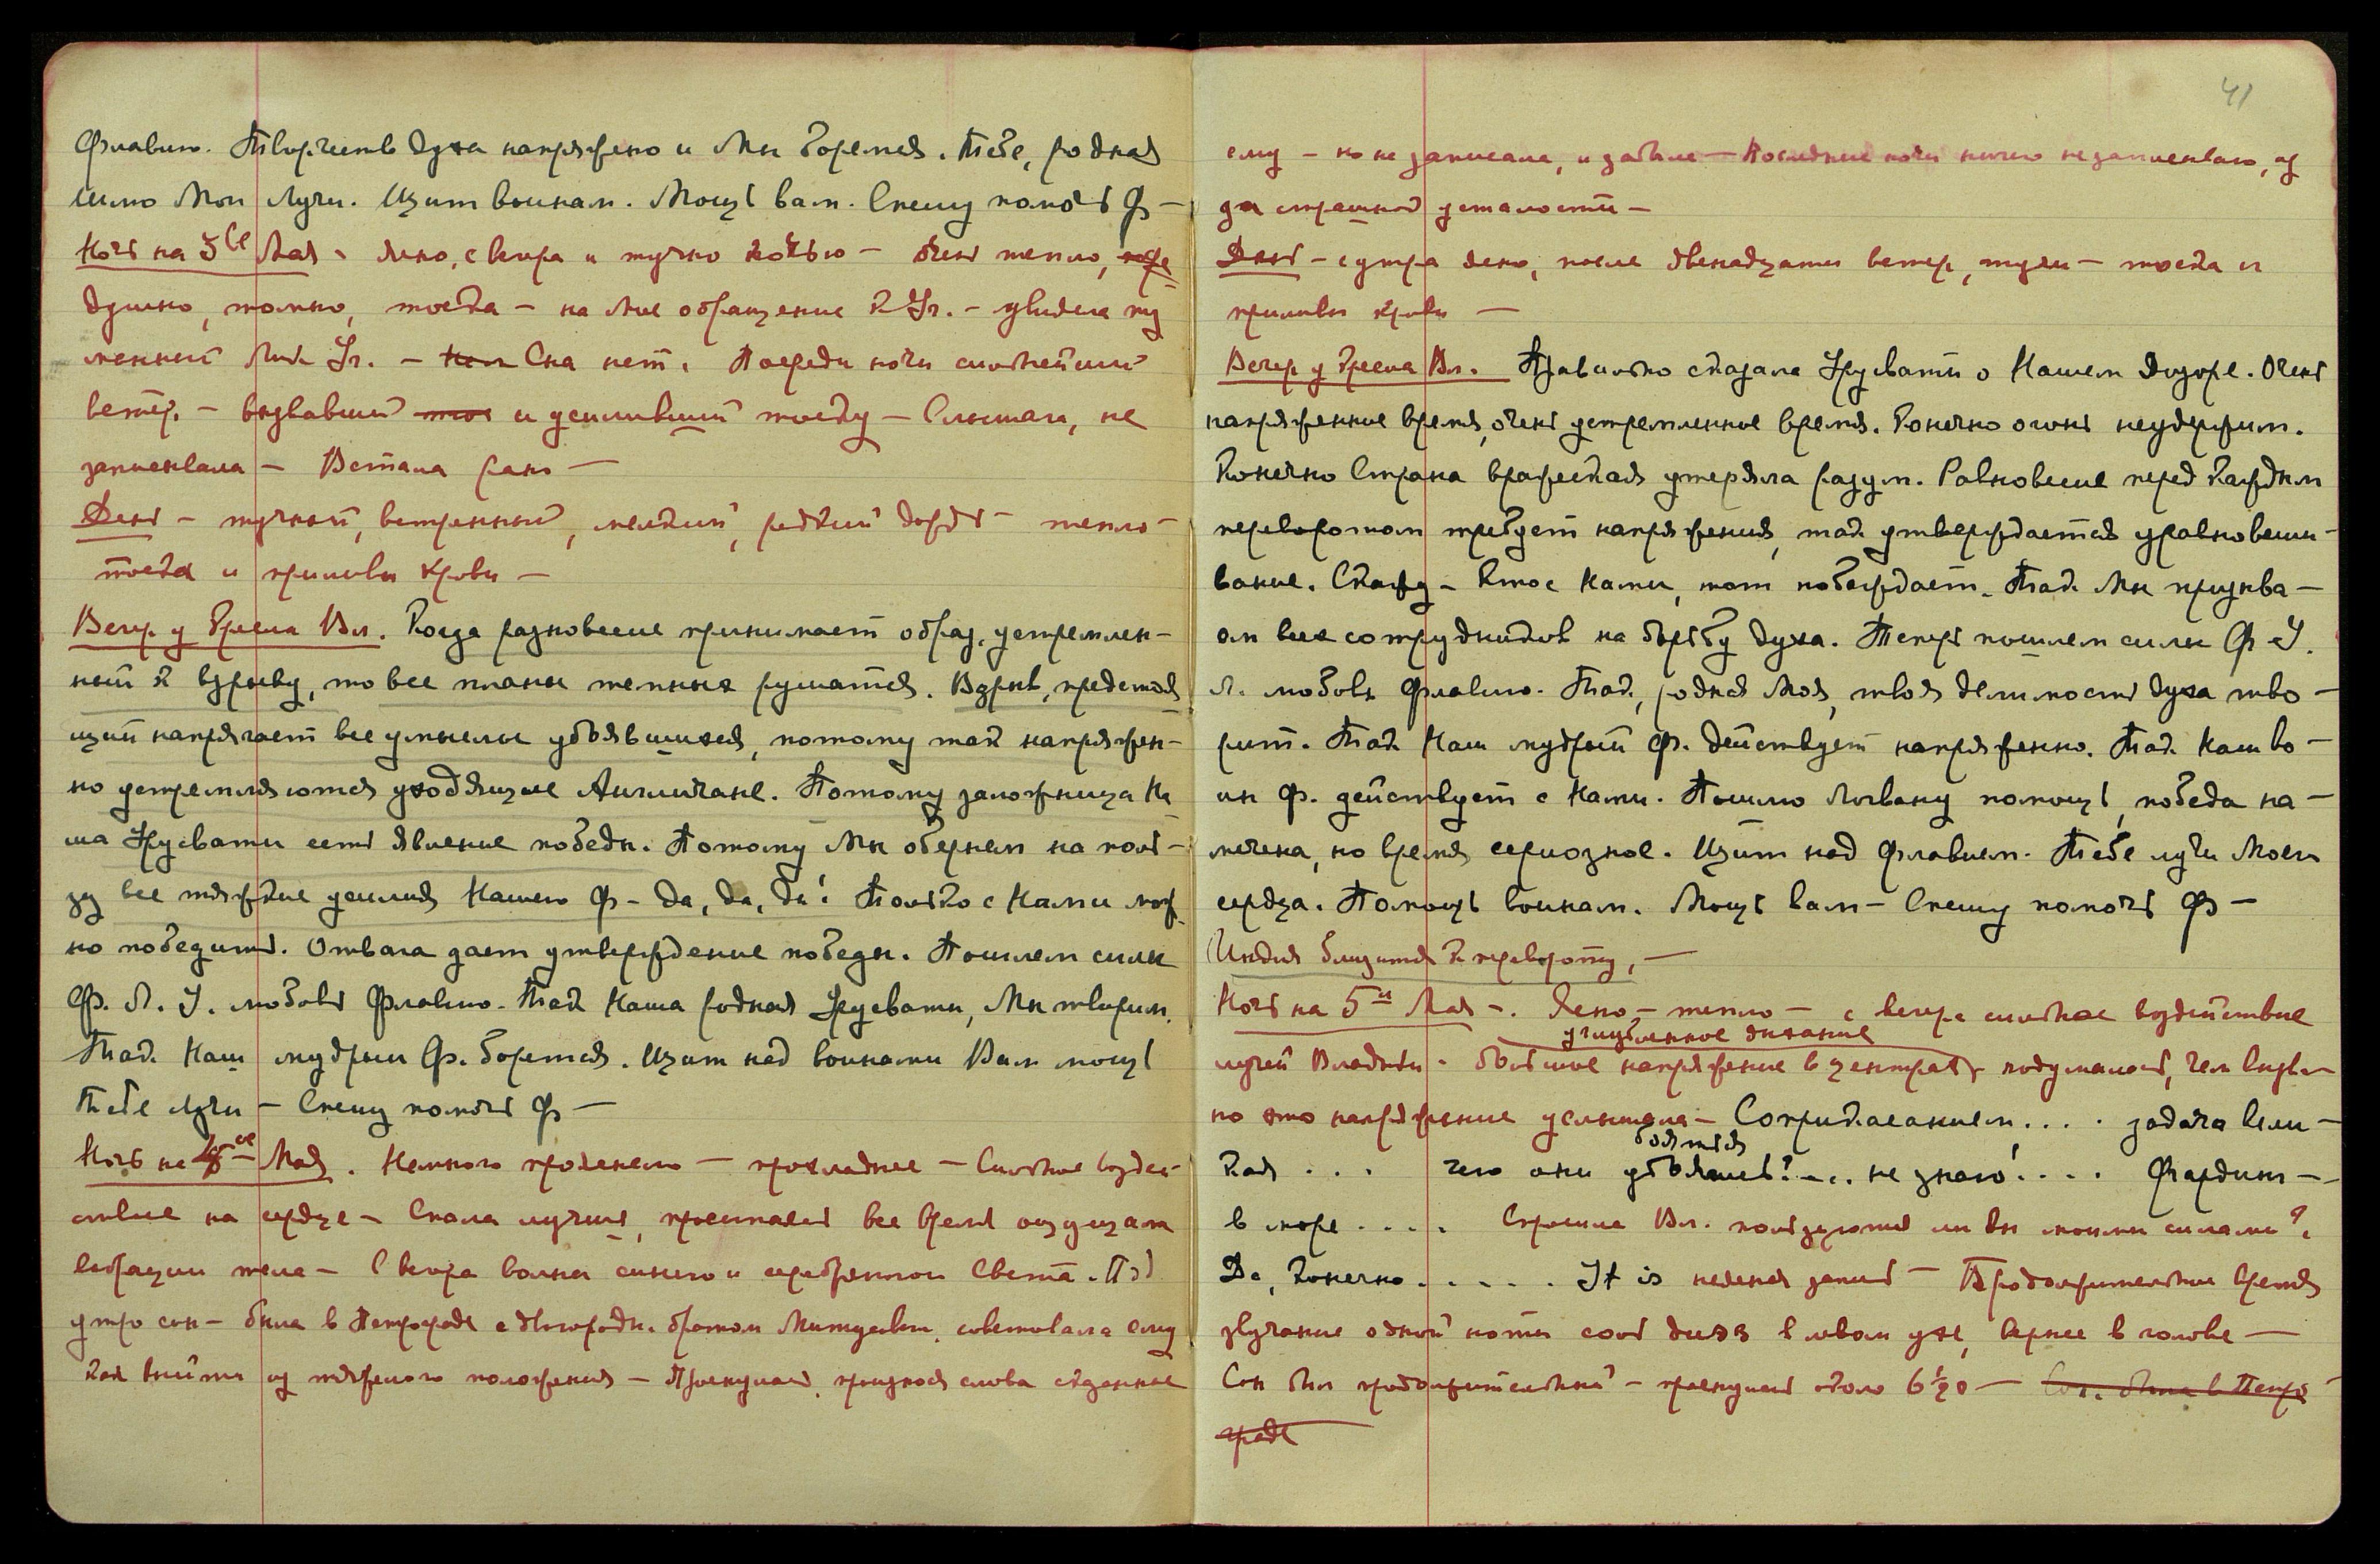 Флавию. Творчество духа напряжено и Мы боремся. Тебе, родная
шлю Мои Лучи. Щит воинам. Мощь вам. Спешу помочь Ф —
Ночь на 3ье Мая - Ясно, с вечера и тучно ночью — очень тепло,
душно, томно, тоска — на мое обращение к Уч. — увидела ту
манный Лик Уч. — Сна нет. Посреди ночи сильнейший
ветер, — вызвавший тос и усиливший тоску — Слышала, не
записывала — Встала рано —
День — тучный, ветренный, мелкий, редкий дождь — тепло —
тоска и приливы крови —
Вечер у Кресла Вл. Когда равновесие принимает образ, устремлен-
ный к взрыву, то все планы темных рушатся. Взрыв, предстоя
щий напрягает все умыслы убоявшихся, потому так напряжен-
но устремляются уходящие Англичане. Потому заложница На
ша Урусвати есть явление победы. Потому Мы обернем на поль-
зу все тяжкие усилия Нашего Ф — да, да, да! Только с Нами мож
но победить. Отвага дает утверждение победы. Пошлем силы
Ф. Л. У. любовь Флавию. Так Наша родная Урусвати, Мы творим.
Так Наш мудрый Ф. борется. Щит над воинами Вам мощь
Тебе лучи — Спешу помочь Ф —
Ночь на 4ое Мая. Немного прояснело — прохладнее — Сильное воздей-
ствие на сердце — Спала лучше, просыпаясь все время ощущала
вибрации тела — С вечера волны синего и серебряного Света. Под
утро сон — была в Петрограде с двоюродн. братом Митусовым, советовала ему
как выйти из тяжелого положения — Проснулась, произнося слова сказанные
41
ему — но не записала, и забыла — Последние ночи ничего не записываю, из
за страшной усталости —
День — с утра ясно, после двенадцати ветер, тучи — тоска и
приливы крови —
Вечер у Кресла Вл. Правильно сказала Урусвати о Нашем Дозоре. Очень
напряженное время, очень устремленное время. Конечно огонь неудержим.
Конечно Страна вражеская утеряла разум. Равновесие перед каждым
переворотом требует напряжения, так утверждается уравновеши-
вание. Скажу — Кто с Нами, тот побеждает. Так Мы призыва —
ем всех сотрудников на борьбу духа. Теперь пошлем силы Ф. У.
Л. любовь Флавию. Так, родная Моя, твоя делимость духа тво —
рит. Так Наш мудрый Ф. действует напряженно. Так Наш во —
ин Ф. действует с Нами. Пошлю Логвану помощь, победа на —
мечена, но время серьозное. Щит над Флавием. Тебе лучи Моего
сердца. Помощь воинам. Мощь вам — Спешу помочь Ф —
Индия близится к перевороту, —
Ночь на 5ое Мая —. Ясно — тепло — с вечера сильное воздействие
углубленное дыхание
лучей Владыки. большое напряжение в центрах, подумала, чем вызва-
но это напряжение услышала — Соприкасанием.... задача вели —
боятся
кая ... чего они убоялись? ... не знаю! .... Фардинг —
в море .... Спросила Вл. пользуются ли Вы моими силами?
Да, конечно ..... It is неясная запись — Продолжительное время
звучание одной ноты соль диэз в левом ухе, вернее в голове —
Сон был продолжительный — проснулась около 6 ½ — Сон, была в Петро
граде